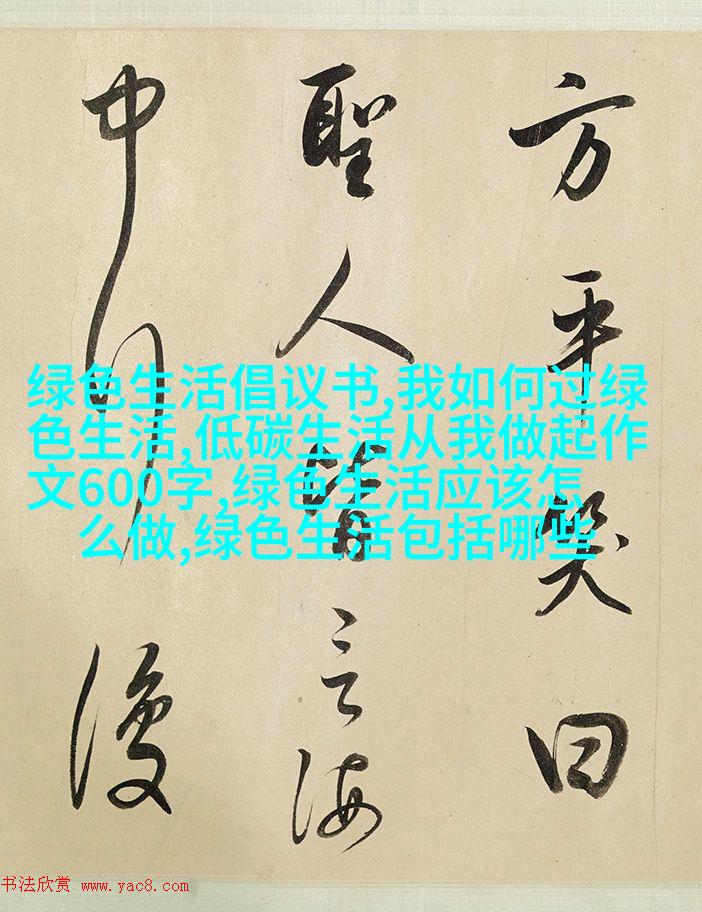 方平笑曰
聖人皆言海
中行復
绿色生活倡议书,我如何过绿
色生活,低碳生活从我做起作
文600字,绿色生活应该怎
么做,绿色生活包括哪些
书法欣赏 www.yac8.com